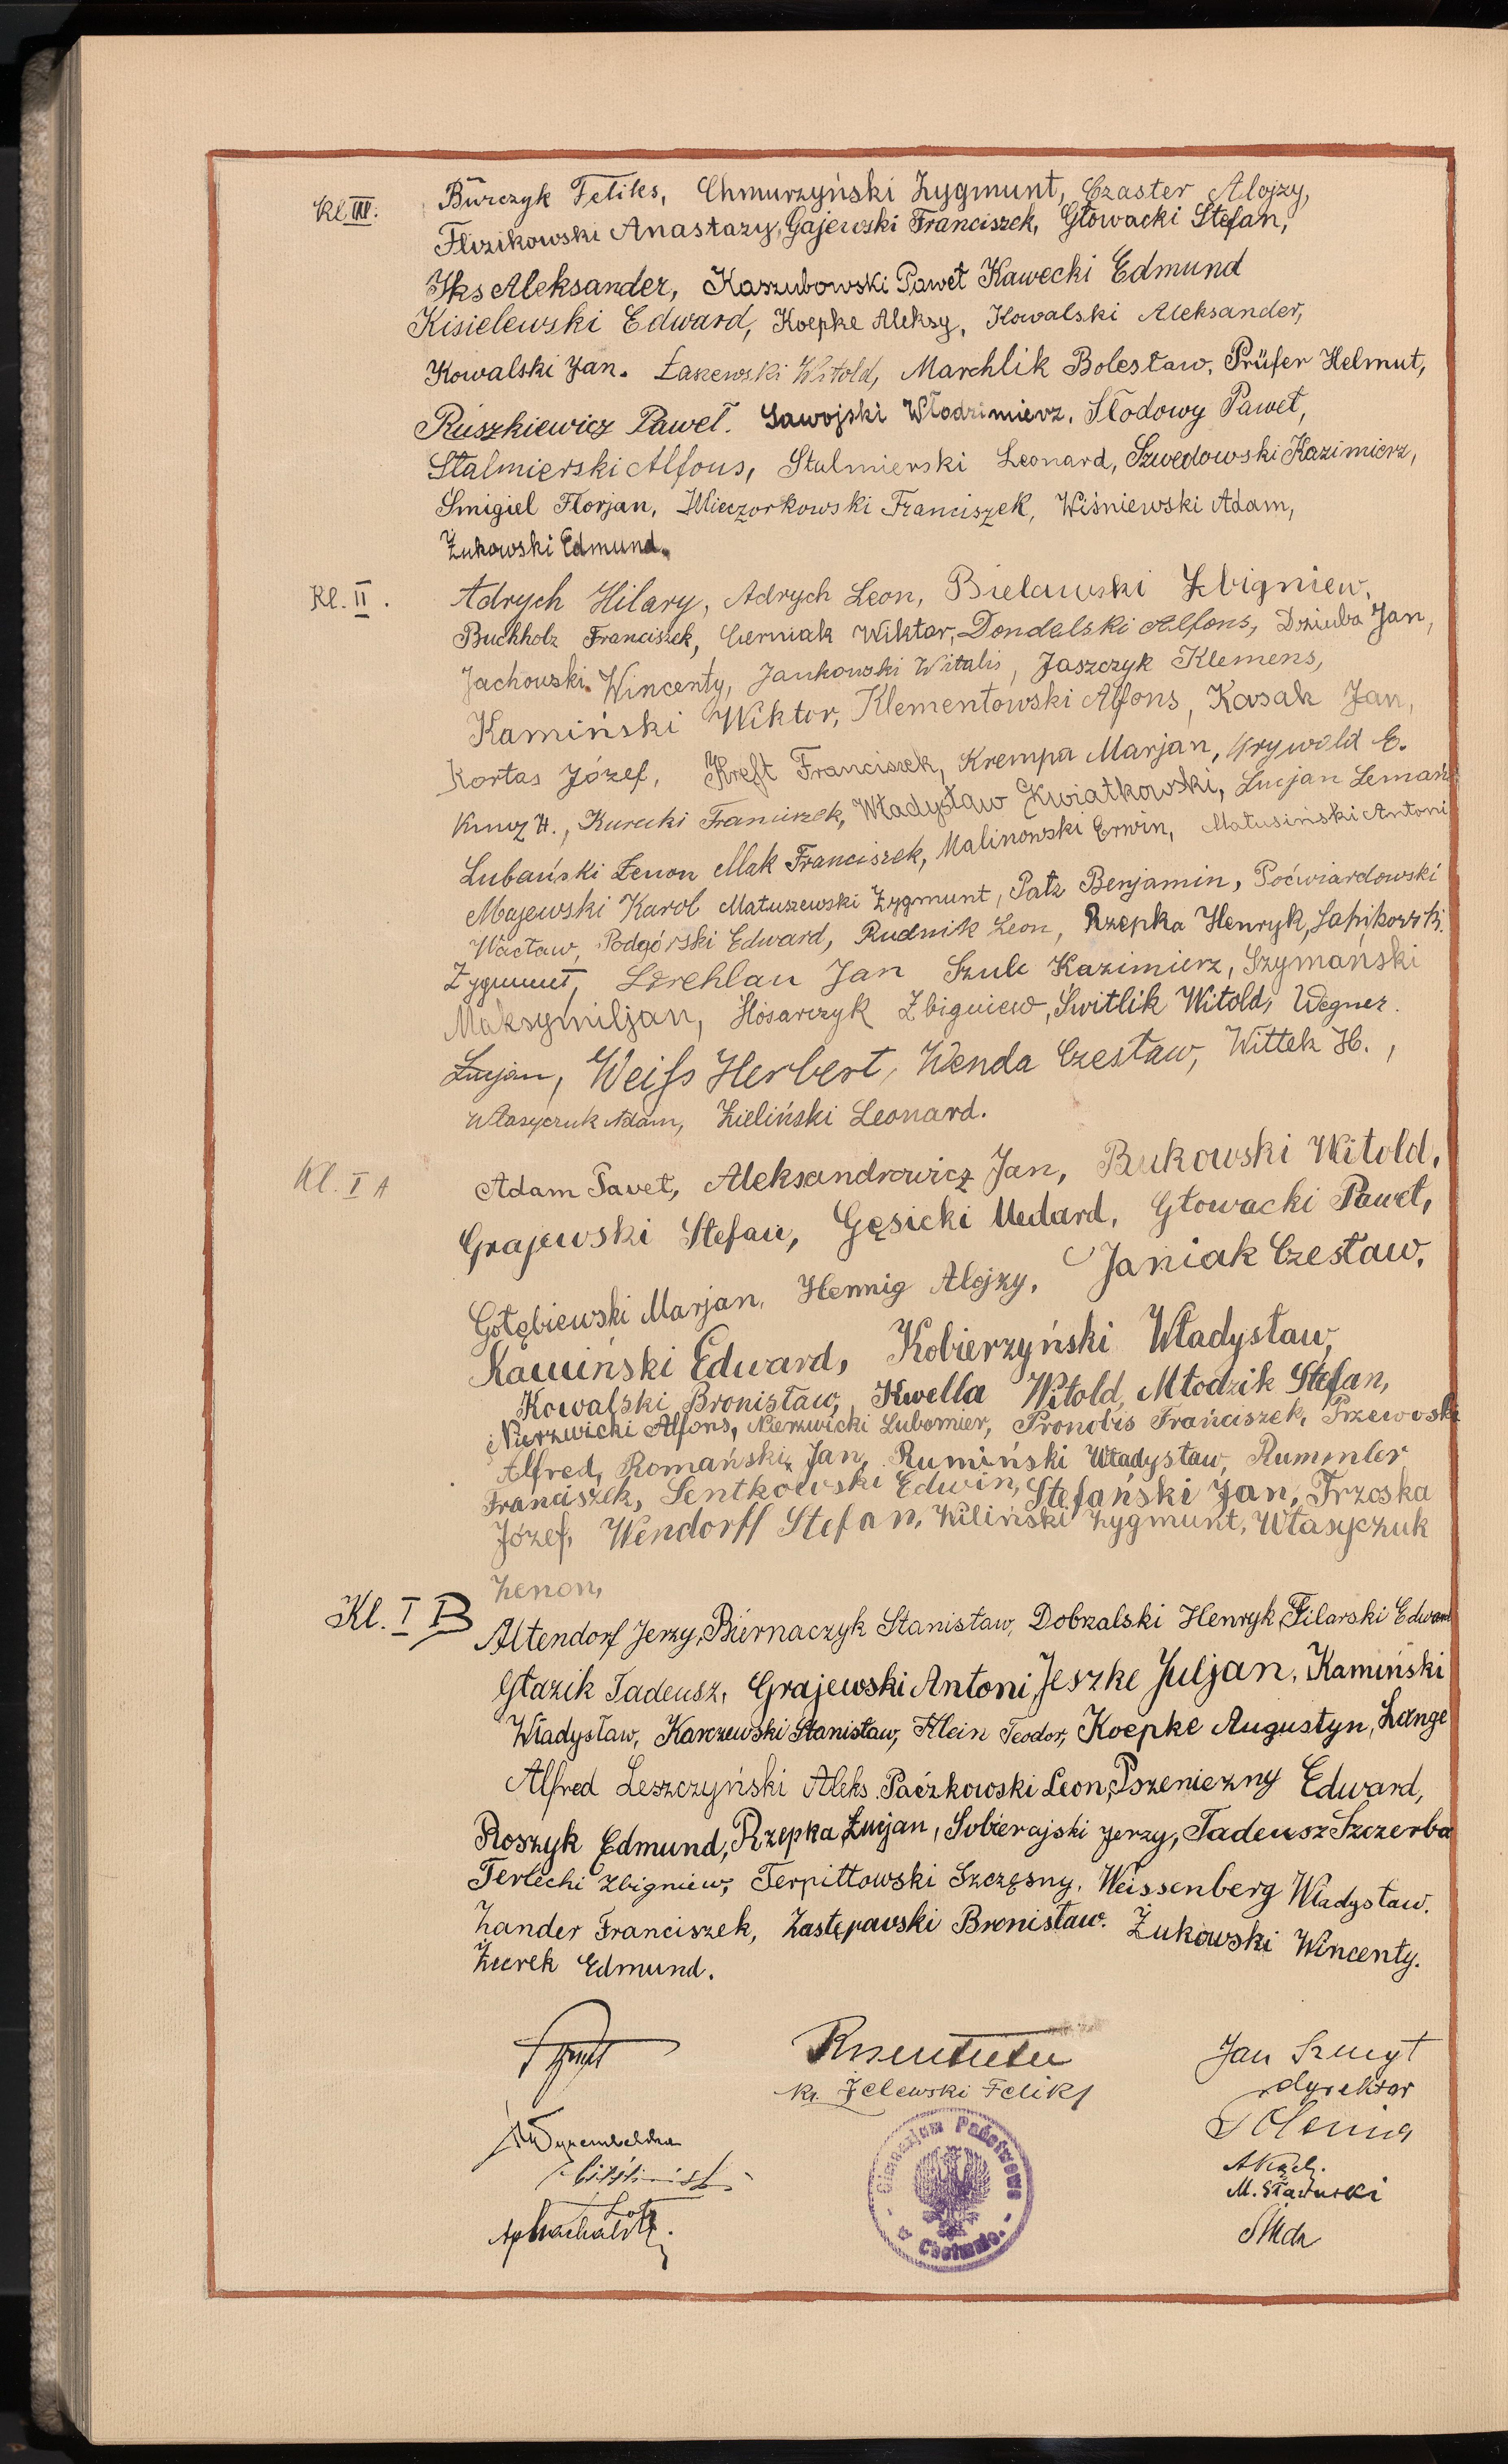 Kl. III. Burczyk Feliks, Chmurzyński Zygmunt, Czaster Alojzy,
Flizikowski Anastazy, Gajewski Franciszek, Głowacki Stefan,
Iks Aleksander, Kaszubowski Paweł Kawecki Edmund
Kisielewski Edward, Koepke Aleksy, Kowalski Aleksander,
Kowalski Jan. Łaszewski Witold, Marchlik Bolesław, Prüfer Helmut,
Ruszkiewicz Paweł. Sawojski Włodzimierz. Słodowy Paweł,
Stalmierski Alfons, Stalmierski Leonard, Szwedowski Kazimierz,
Śmigiel Florjan, Wieczorkowski Franciszek, Wiśniewski Adam,
Żukowski Edmund.
Kl. II. Adrych Hilary, Adrych Leon, Bielawski Zbigniew,
Buchholz Franciszek, Czerniak Wiktor, Dondalski Alfons, Dziuba Jan,
Jachowski Wincenty, Jankowski Witalis, Jaszczyk Klemens,
Kamiński Wiktor, Klementowski Alfons, Kasak Jan,
Kortas Józef, Kreft Franciszek, Krempa Marjan, Krywald E.
Kunz H., Kurecki Franciszek, Władysław Kwiatkowski, Lucjan Lemań
Lubański Zenon Mak Franciszek, Malinowski Erwin, Matusiński Antoni
Majewski Karol Matuszewski Zygmunt, Patz Benjamin, Poćwiardowski
Wacław, Podgórski Edward, Rudnik Leon, Rzepka Henryk,
Zygmunt, Jan Szulc Kazimierz, Szymański
Maksymiljan, Zbigniew, Świtlik Witold, Wegner
Lucjan, Weiss Herbert, Wenda Czesław, Wittek H.,
Własyczuk Adam, Zieliński Leonard.
Kl. I A Adam Paweł, Aleksandrowicz Jan, Bukowski Witold,
Grajewski Stefan, Gęsicki Medard, Głowacki Paweł,
Gołębiewski Marjan, Hennig Alojzy, Janiak Czesław,
Kamiński Edward, Kobierzyński Władysław,
Kowalski Bronisław, Kwella Witold, Młodzik Stefan,
Nierzwicki Alfons, Nierzwicki Lubomier, Pronobis Franciszek, Przewoski
Alfred, Romański Jan, Rumiński Władysław, Rummler
Franciszek, Sentkowski Edwin, Stefański Jan, Trzoska
Józef, Wendorff Stefan, Wiliński Zygmunt, Własyczuk
Zenon,
Kl. I B Altendorf Jerzy, Biernaczyk Stanisław, Dobralski Henryk, Filarski Edward
Głazik Tadeusz, Grajewski Antoni, Jeszke Juljan, Kamiński
Władysław, Karczewski Stanisław, Klein Teodor, Koepke Augustyn, Lange
Alfred Leszczyński Aleks. Paczkowski Leon, Pszeniczny Edward,
Roszyk Edmund, Rzepka Łucjan, Sobierajski Jerzy, Tadeusz Szczerba
Terlecki Zbigniew, Terpittowski Szczęsny, Weissenberg Władysław.
Zander Franciszek, Zastępowski Bronisław. Żukowski Wincenty.
Żurek Edmund.
Jan Szmyt
ks. Żelewski Feliks dyrektor
M. Sławuski
Gimnazjum Państwowe w Chełmnie.